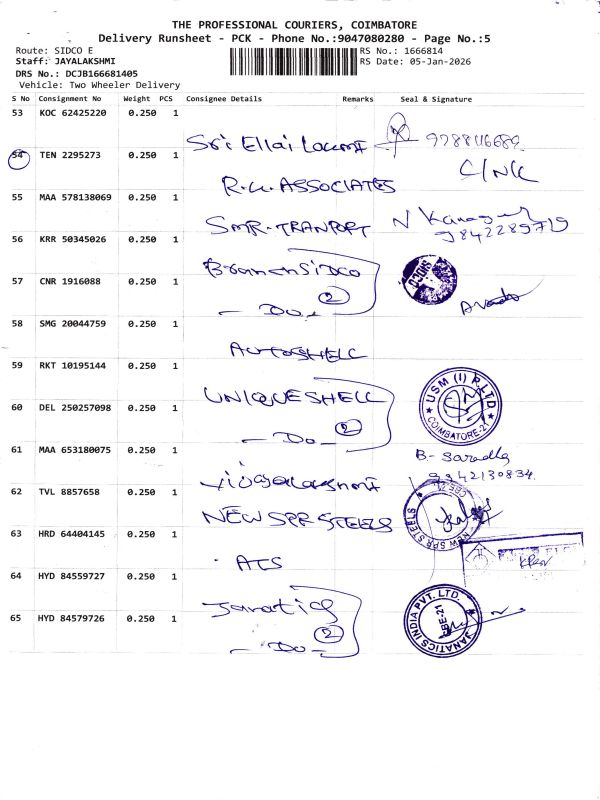 THE PROFESSIONAL COURIERS, COIMBATORE
Delivery Runsheet - PCK - Phone No.:9047080280 - Page No.:5
Route: SIDCO E
RS No.: 1666814
Staff: JAYALAKSHMI
RS Date: 05-Jan-2026
DRS No.: DCJB166681405
Vehicle: Two Wheeler Delivery
S No Consignment No Weight PCS Consignee Details Remarks Seal & Signature
53 KOC 62425220 0.250 1 Sri Ellai
54 TEN 2295273 0.250 1 R.K. ASSOCIATES
55 MAA 578138069 0.250 1 SMR-TRANPORT 9842289719
56 KRR 50345026 0.250 1 SIDCO
57 CNR 1916088 0.250 1 - Do - 2
58 SMG 20044759 0.250 1 AUTOSHELL
59 RKT 10195144 0.250 1 UNIQUE SHELL USM (I) P. LTD COIMBATORE-21
60 DEL 250257098 0.250 1 - Do - 2
61 MAA 653180075 0.250 1 B- Saradha 9342130834
62 TVL 8857658 0.250 1 NEW SPR STEELS NEW SPR STEELS
63 HRD 64404145 0.250 1 ATS
64 HYD 84559727 0.250 1 Janatics JANATICS INDIA PVT. LTD. CBE-21
65 HYD 84579726 0.250 1 - Do - 2